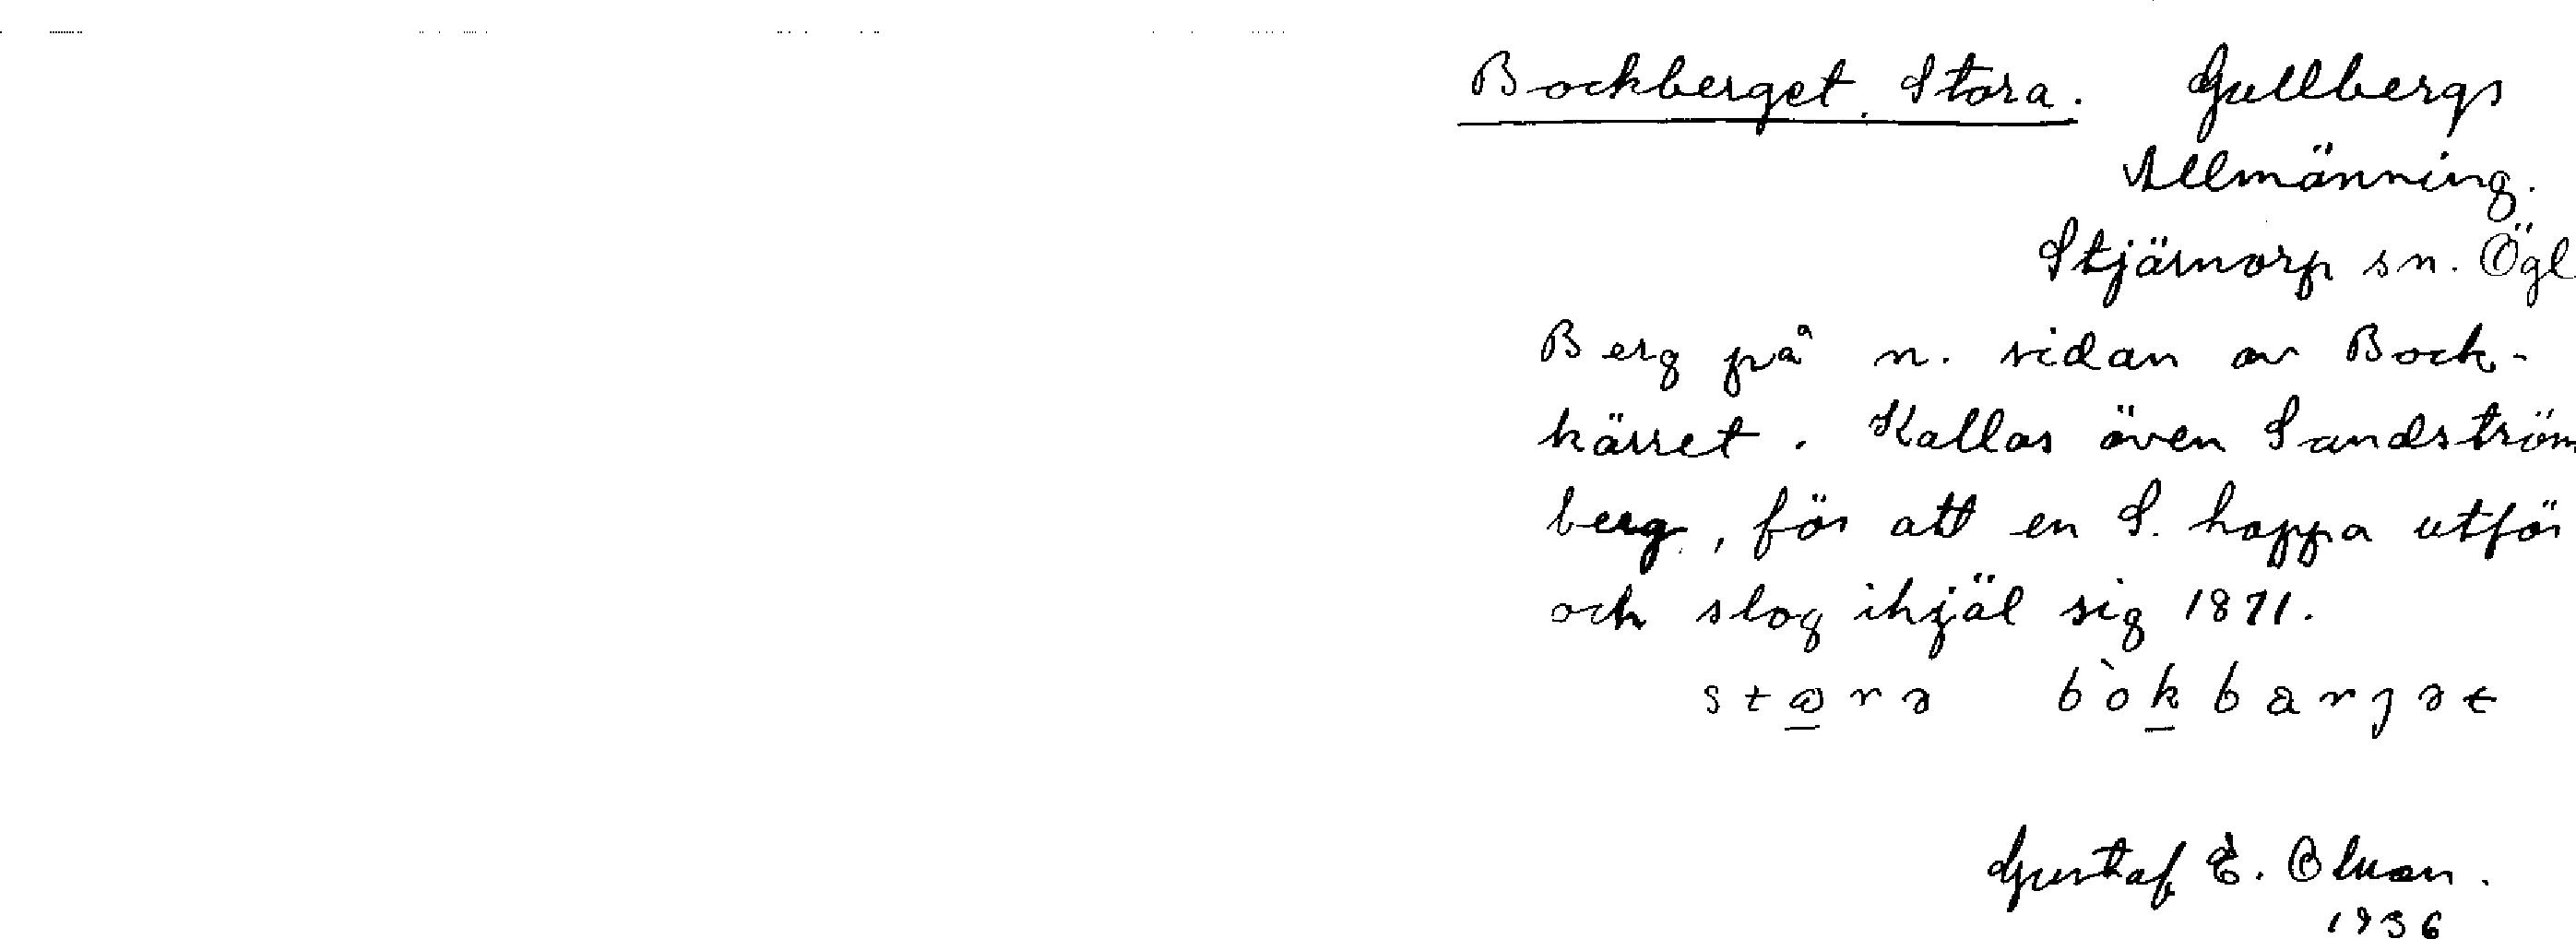 Bockberget, Stora. Gullbergs
Allmänning.
Stjärnorp sn. Ögl
Berg på n. sidan av Bock-
kärret. Kallas även Sandström
berg, för att en S. hoppa utför
och slog ihjäl sig 1871.
Gustaf E. Olson.
1936